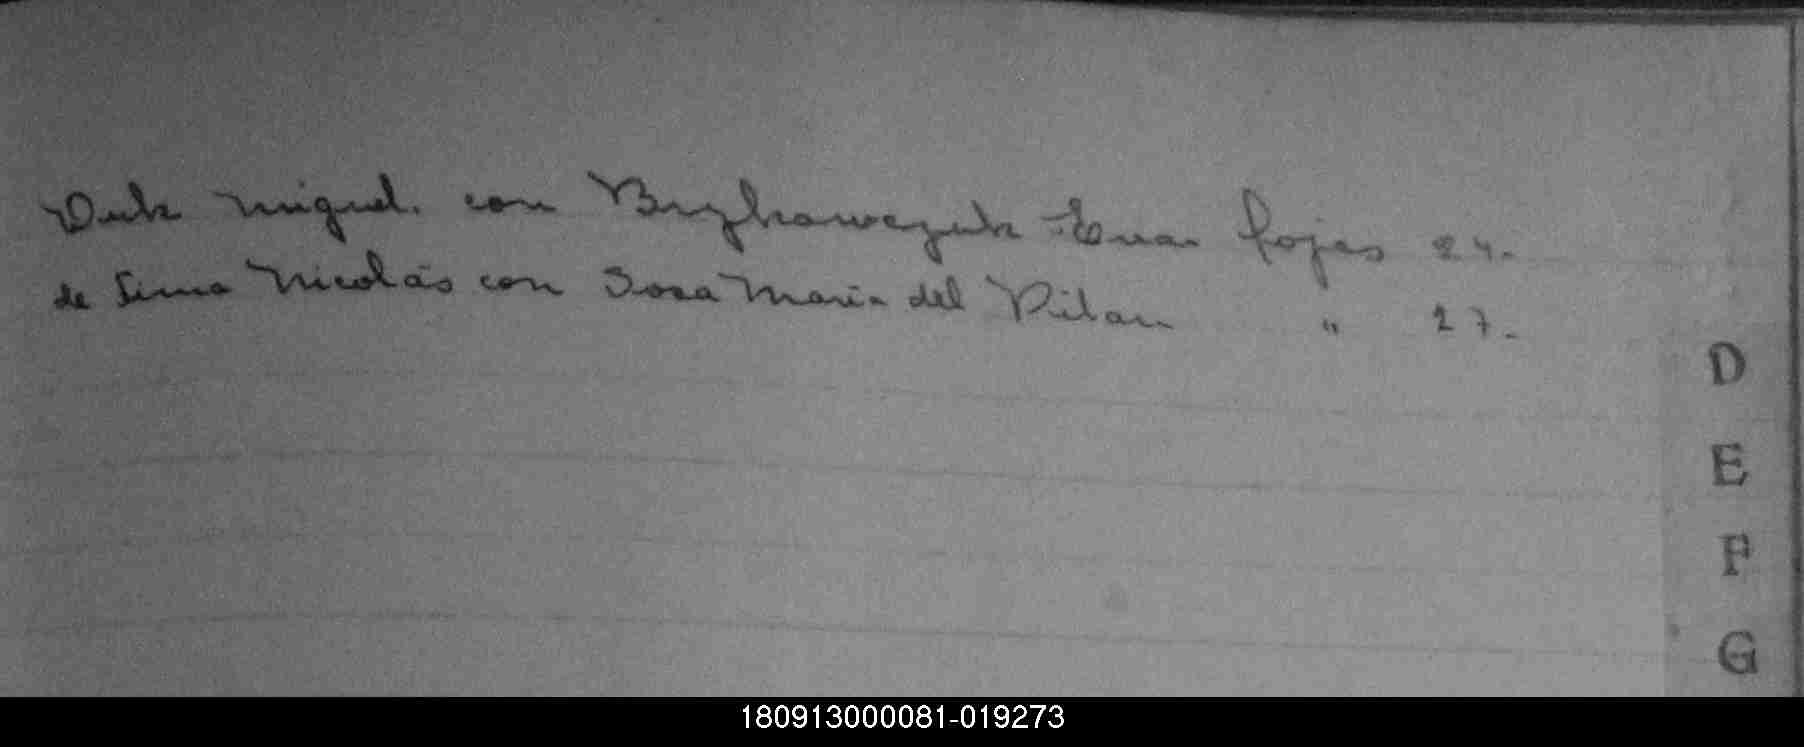 Duk Miguel. con Brykawczuk Eva fojas 24.
de Lima Nicolás con Sosa María del Pilar " 27.
D
E
F
G
180913000081-019273